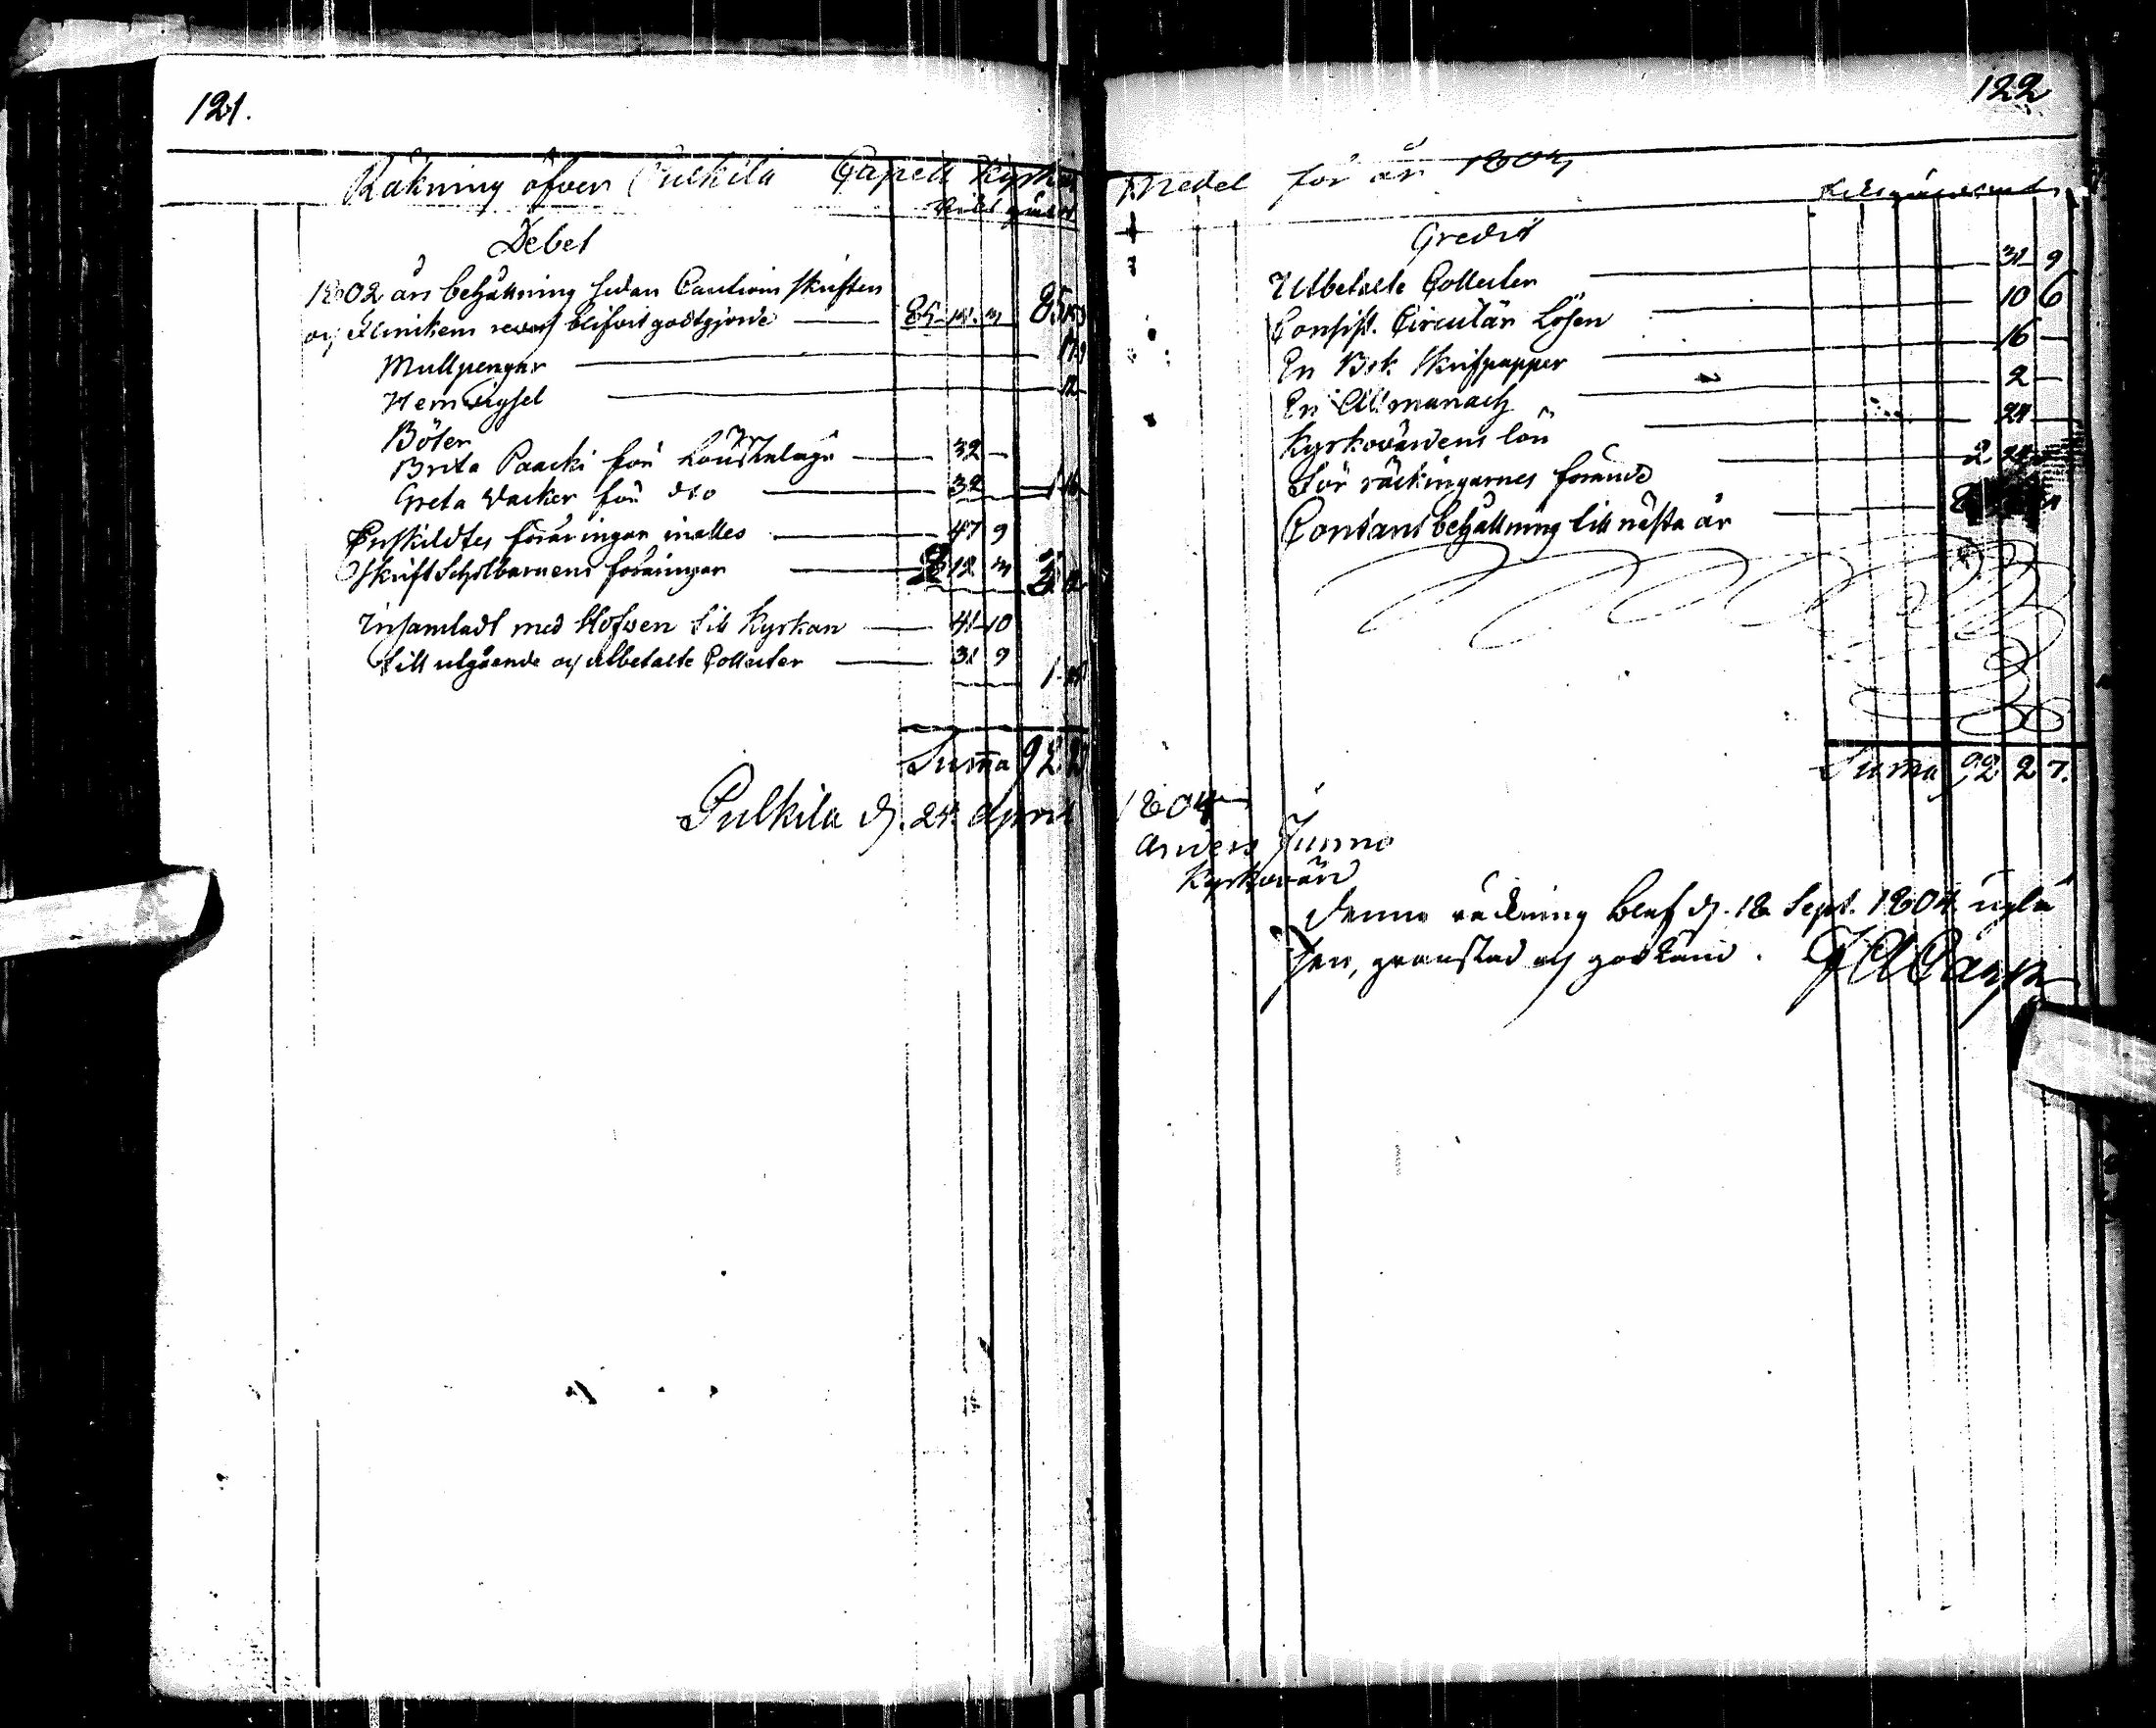 121.
Räkning öfver Pulkila Capell Kyrkas
Riksgälds
Debet
1802 års behållning sedan Cautions skriften
och Klinikens revers blifvit godtgjorde 85 3 85
Mullpengar
Hemvigsel 12
Böter
Brita Paacki för Lönskaläge 32 —
Greta Wacker för dio 32 1 16
Enskildtes föräringar inalles 47 9
Skriftscholbarnens föräringar 2 12 3 3 12
Insamladt med Hofven till Kyrkan 41 10
till utgående och utbetalte Collecter 31 9
1
Summa 92 2
Pulkila d. 24 April
122
Medel för år 1803
Riksgälds
Credit
Utbetalte Collecter 31 9
Consist. Circulär Lösen 10 6
En Bok Skrifpapper 16 —
En Allmanach 2 —
Kyrkovärdens lön 24 —
För räckningarnes förande 2 24
Contant behållning till nästa år
Summa 92 2 7.
1804
Anders Junno
Kyrkovärd
Denne räckning blef d. 18 Sept. 1804 uplä
sen, granskad och godkänd.